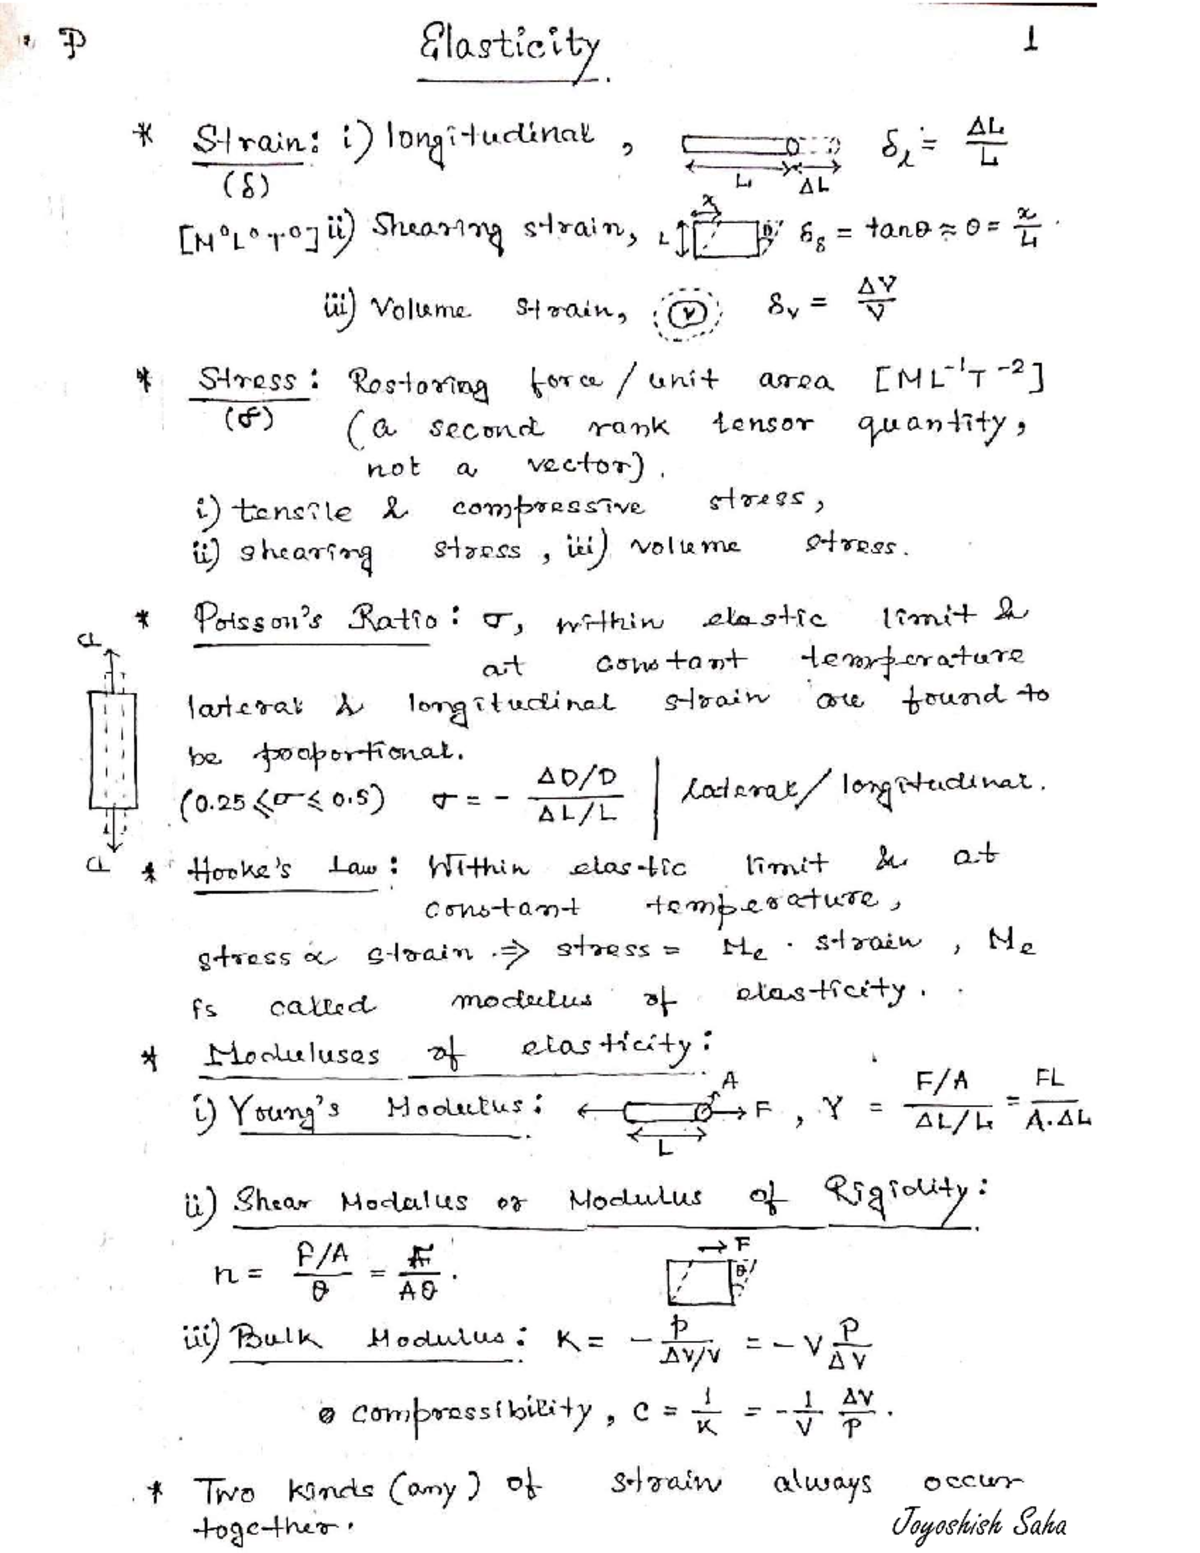 P Elasticity 1
* Strain: i) longitudinal, L ΔL δ_l = ΔL/L
(δ)
[M⁰L⁰T⁰] ii) Shearing strain, L x θ δ_s = tanθ ≈ θ = x/L.
iii) Volume strain, V δ_v = ΔV/V
* Stress: Restoring force / unit area [ML⁻¹T⁻²]
(σ) (a second rank tensor quantity,
not a vector).
i) tensile & compressive stress,
ii) shearing stress, iii) volume stress.
* Poisson's Ratio: σ, within elastic limit &
at constant temperature
lateral & longitudinal strain are found to
be proportional.
(0.25 ≤ σ ≤ 0.5) σ = - (ΔD/D)/(ΔL/L) | lateral/longitudinal.
* Hooke's Law: Within elastic limit & at
constant temperature,
stress ∝ strain ⇒ stress = Me · strain, Me
is called modulus of elasticity.
* Moduluses of elasticity:
i) Young's Modulus: A F L, Y = (F/A)/(ΔL/L) = FL/(A.ΔL)
ii) Shear Modulus or Modulus of Rigidity:
n = (F/A)/θ = F/(Aθ). F θ
iii) Bulk Modulus: K = - p/(ΔV/V) = - V P/ΔV
compressibility, C = 1/K = - 1/V ΔV/P.
* Two kinds (any) of strain always occur
together.
Joyoshish Saha